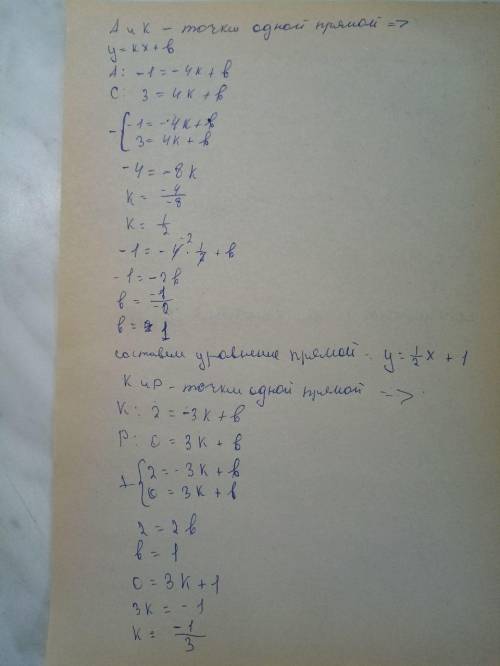 А и К – точки одной прямой =>
y = kx + b
A: -1 = -4k + b
C: 3 = 4k + b
-{ -1 = -4k + b
3 = 4k + b
-4 = -8k
k = -4/-8
k = 1/2
-1 = -4 · 1/2 + b
-1 = -2b
b = -1/-2
b = 1
составим уравнение прямой: y = 1/2 x + 1
К и Р – точки одной прямой =>
K: 2 = -3k + b
P: 0 = 3k + b
+{ 2 = -3k + b
0 = 3k + b
2 = 2b
b = 1
0 = 3k + 1
3k = -1
k = -1/3